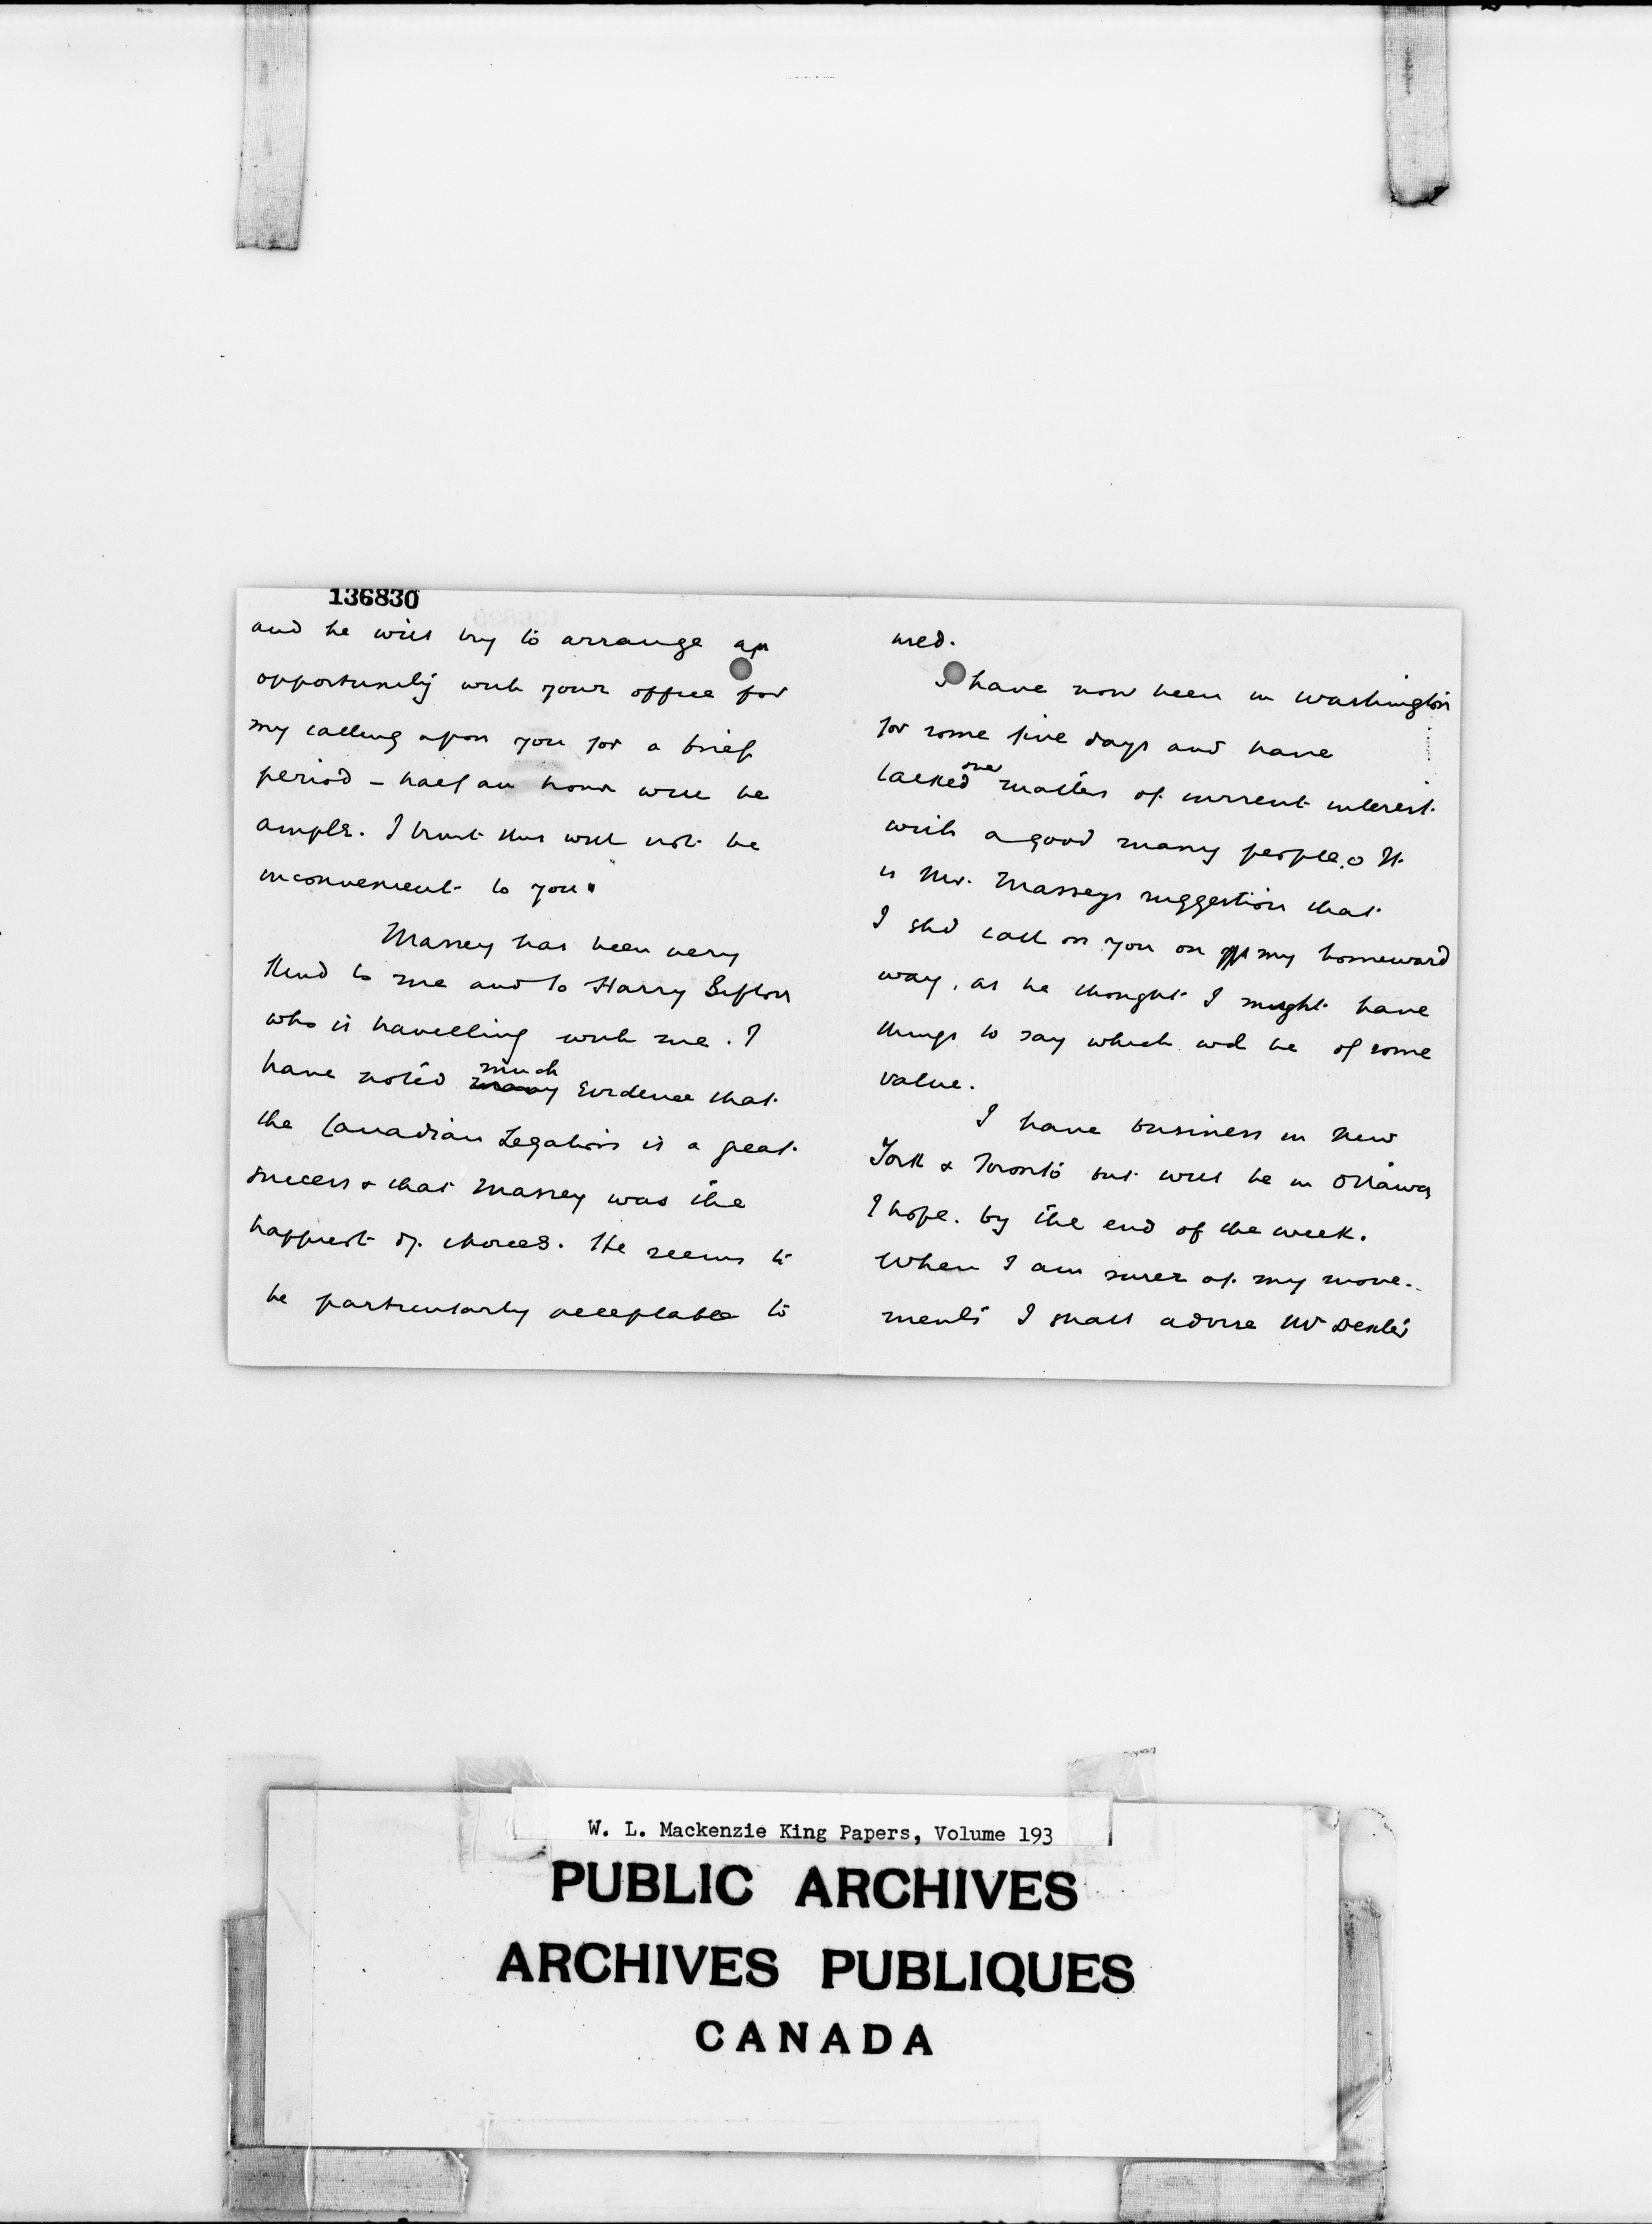 136830
and he will try to arrange an
opportunity with your office for
my calling upon you for a brief
period - half an hour will be
ample. I trust this will not be
inconvenient to you.
Massey has been very
kind to me and to Harry Sifton
who is travelling with me. I
have noted many much evidence that
the Canadian Legation is a great
success & that Massey was the
happiest of choices. He seems to
be particularly acceptable to
used.
I have now been in Washington
for some five days and have
talked over matters of current interest
with a good many people. It
is Mr. Masseys suggestion that
I shd call on you on my homeward
way, as he thought I might have
things to say which wd be of some
value.
I have business in New
York & Toronto but will be in Ottawa
I hope. by the end of the week.
When I am surer of my move-
ments I shall advise Mr Dexter
W. L. Mackenzie King Papers, Volume 193
PUBLIC ARCHIVES
ARCHIVES PUBLIQUES
CANADA